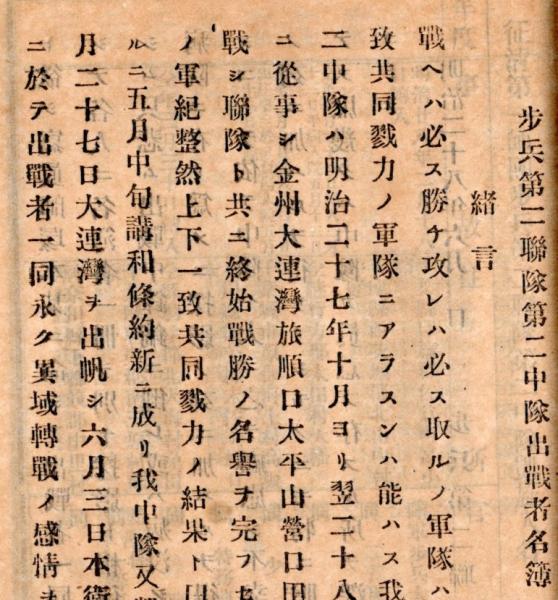 步兵第二聯隊第二中隊出戰者名簿
緖言
戰ヘハ必ス勝チ攻レハ必ス取ルノ軍隊ハ
致共同戮力ノ軍隊ニアラスンハ能ハス我
二中隊ハ明治二十七年十月ヨリ翌二十八
ニ從事シ金州大連灣旅順口太平山營口田
戰シ聯隊ト共ニ終始戰勝ノ名譽ヲ完フセ
ノ軍紀整然上下一致共同戮力ノ結果ト
ルニ五月中旬講和條約新ニ成リ我中隊又
月二十七日大連灣ヲ出帆シ六月三日本衛
ニ於テ出戰者一同永ク異域轉戰ノ感情